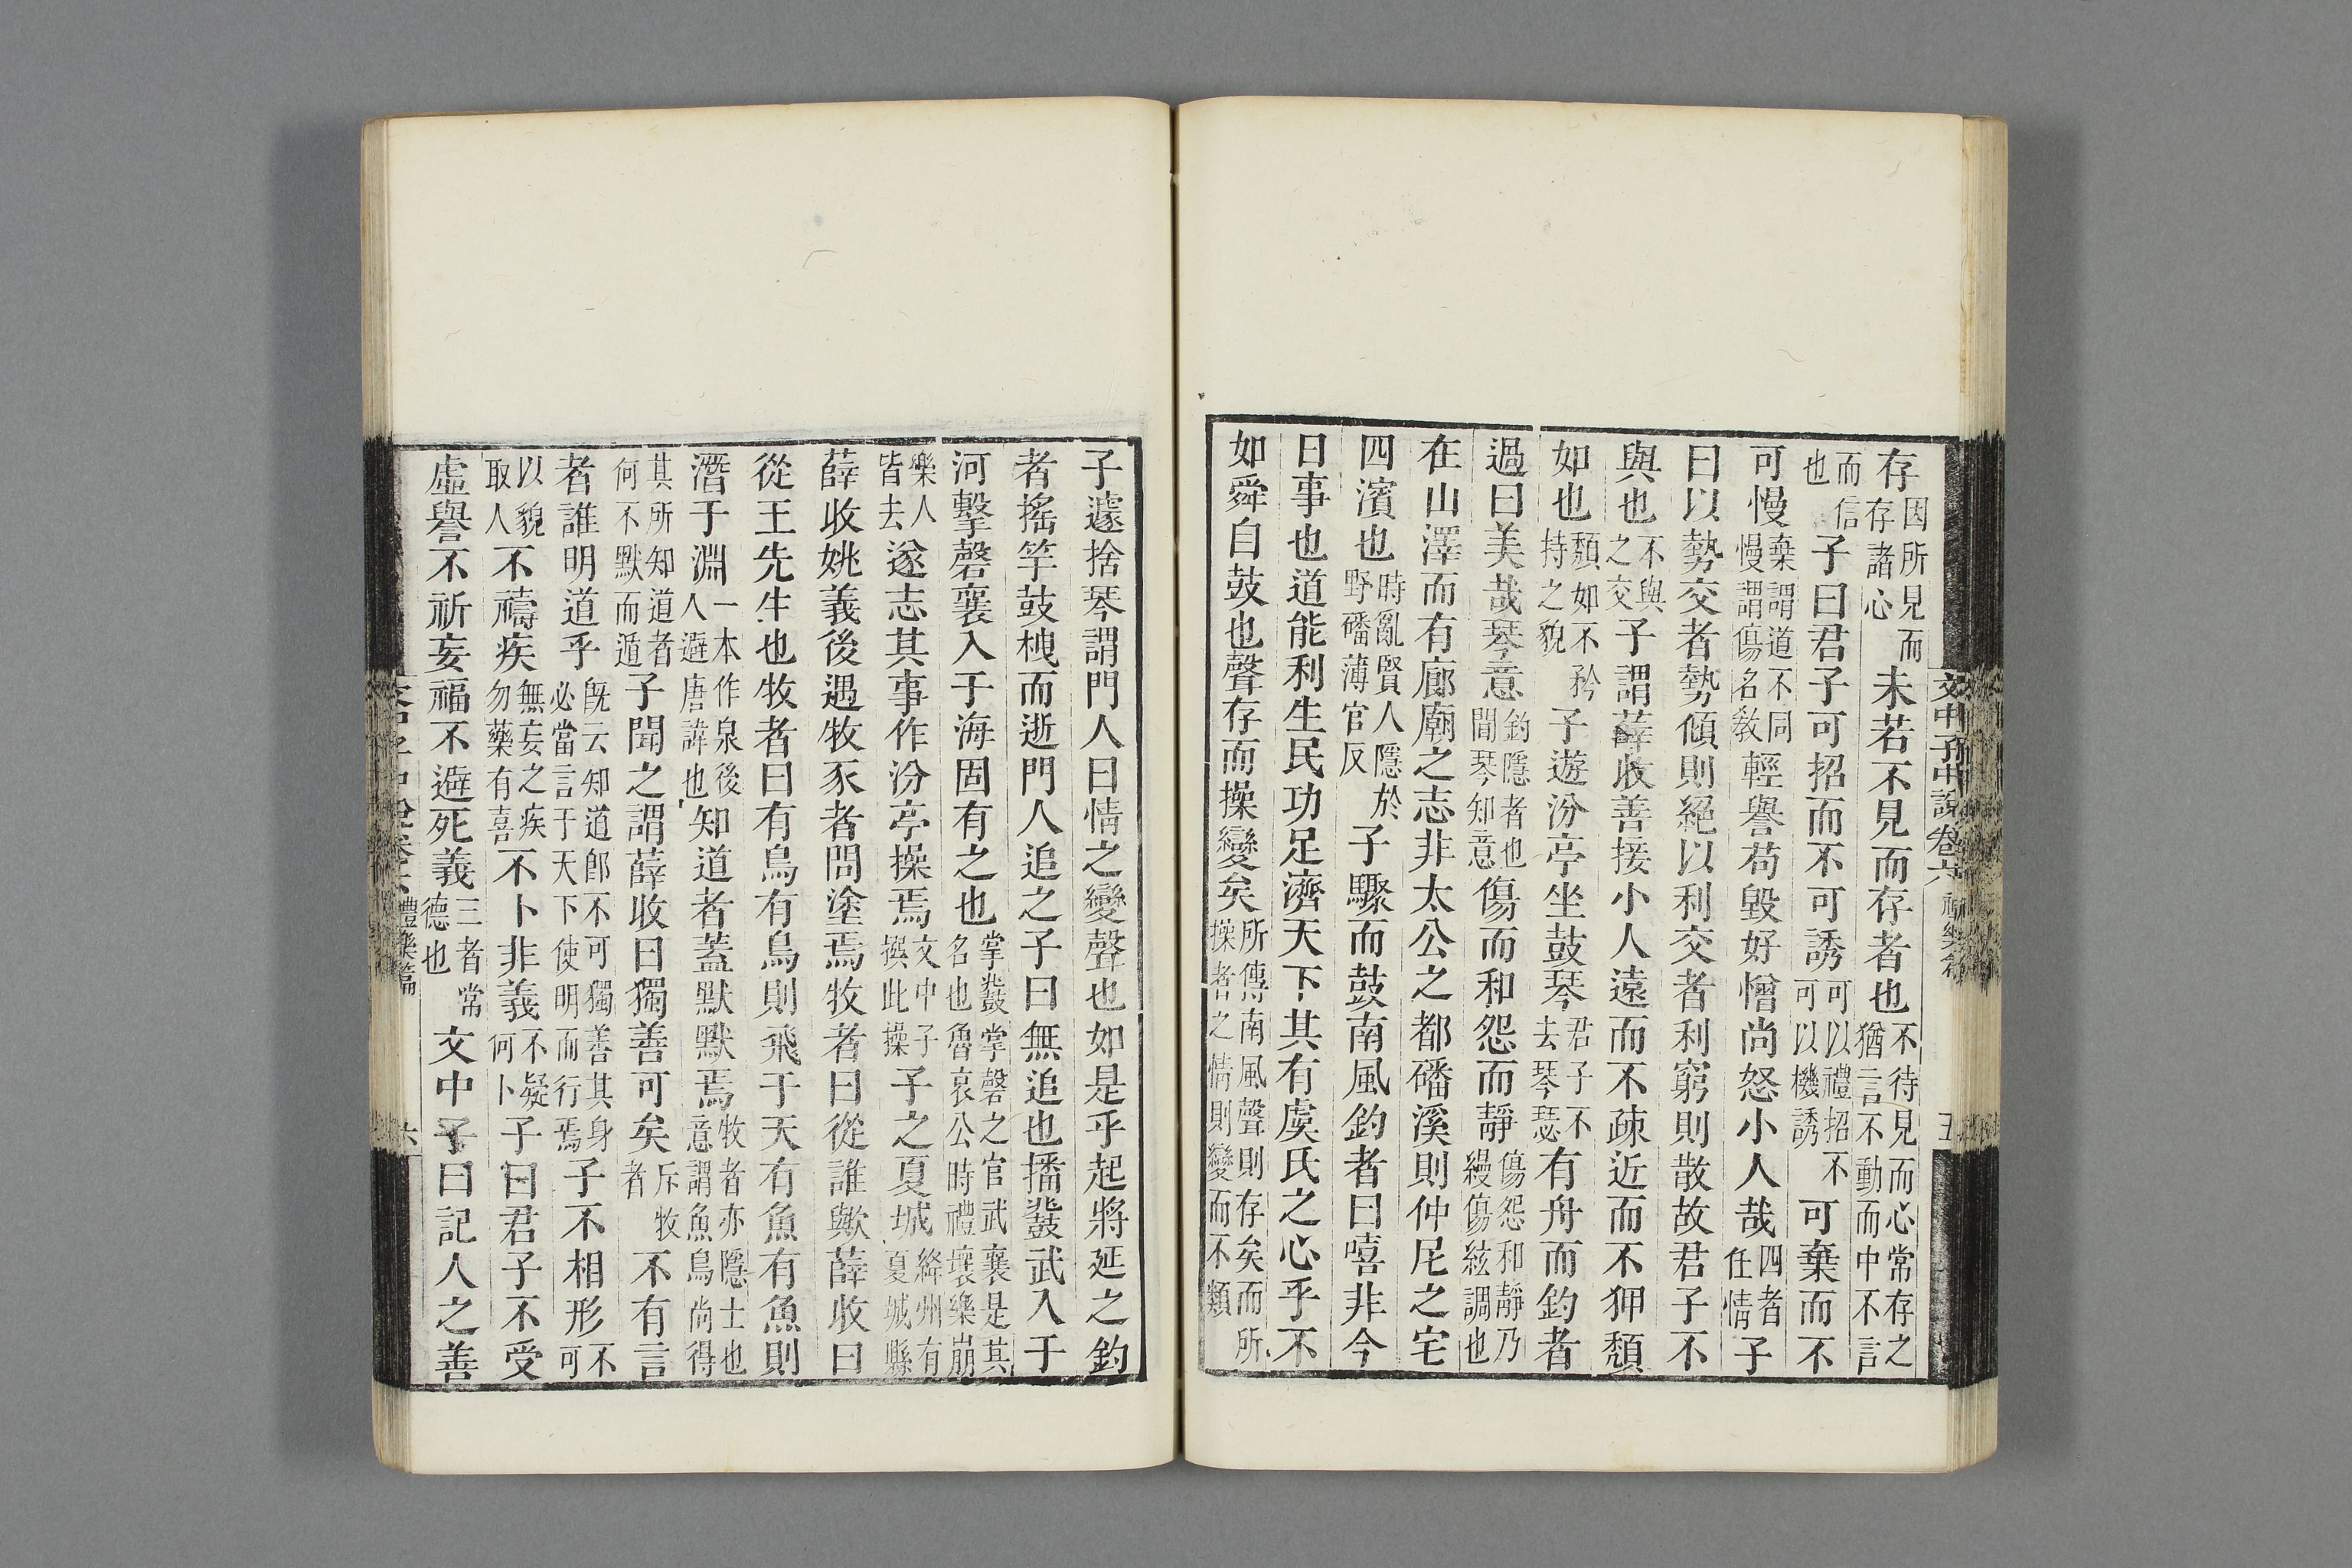 存因所見而存諸心未若不見而存者也不待見而心常存之猶言不動而中不言
而信也子曰君子可招而不可誘可以禮招不可以機誘可棄而不
可慢棄謂道不同慢謂傷名教輕譽苟毀好憎尚怒小人哉四者任情子
曰以勢交者勢傾則絕以利交者利窮則散故君子不
與也不與之交子謂薛收善接小人遠而不疎近而不狎頽
如也頽如不矜持之貌子遊汾亭坐鼓琴君子不去琴瑟有舟而釣者
過曰美哉琴意釣隱者也聞琴知意傷而和怨而靜傷怨和靜乃縵傷絃調也
在山澤而有廊廟之志非太公之都磻溪則仲尼之宅
四濱也時亂賢人隱於野磻薄官反子驟而鼓南風釣者曰嘻非今
日事也道能利生民功足濟天下其有虞氏之心乎不
如舜自鼓也聲存而操變矣所傳南風聲則存矣而所操者之情則變而不類
文中子中說卷六
五
子遽捨琴謂門人曰情之變聲也如是乎起將延之釣
者搖竿鼓栧而逝門人追之子曰無追也播鼗武入于
河擊磬襄入于海固有之也掌鼗掌磬之官武襄是其名也魯哀公時禮壞樂崩
樂人皆去遂志其事作汾亭操焉文中子撰此操子之夏城絳州有夏城縣
薛收姚義後遇牧豕者問塗焉牧者曰從誰歟薛收曰
從王先生也牧者曰有鳥有鳥則飛于天有魚有魚則
潛于淵一本作泉後人避唐諱也知道者蓋默默焉牧者亦隱士也意謂魚鳥尚得
其所知道者何不默而遁子聞之謂薛收曰獨善可矣斥牧者不有言
者誰明道乎旣云知道卽不可獨善其身必當言于天下使明而行焉子不相形不可
以貌取人不禱疾無妄之疾勿藥有喜不卜非義不疑何卜子曰君子不受
虛譽不祈妄福不避死義三者常德也文中子曰記人之善
禮樂篇
六